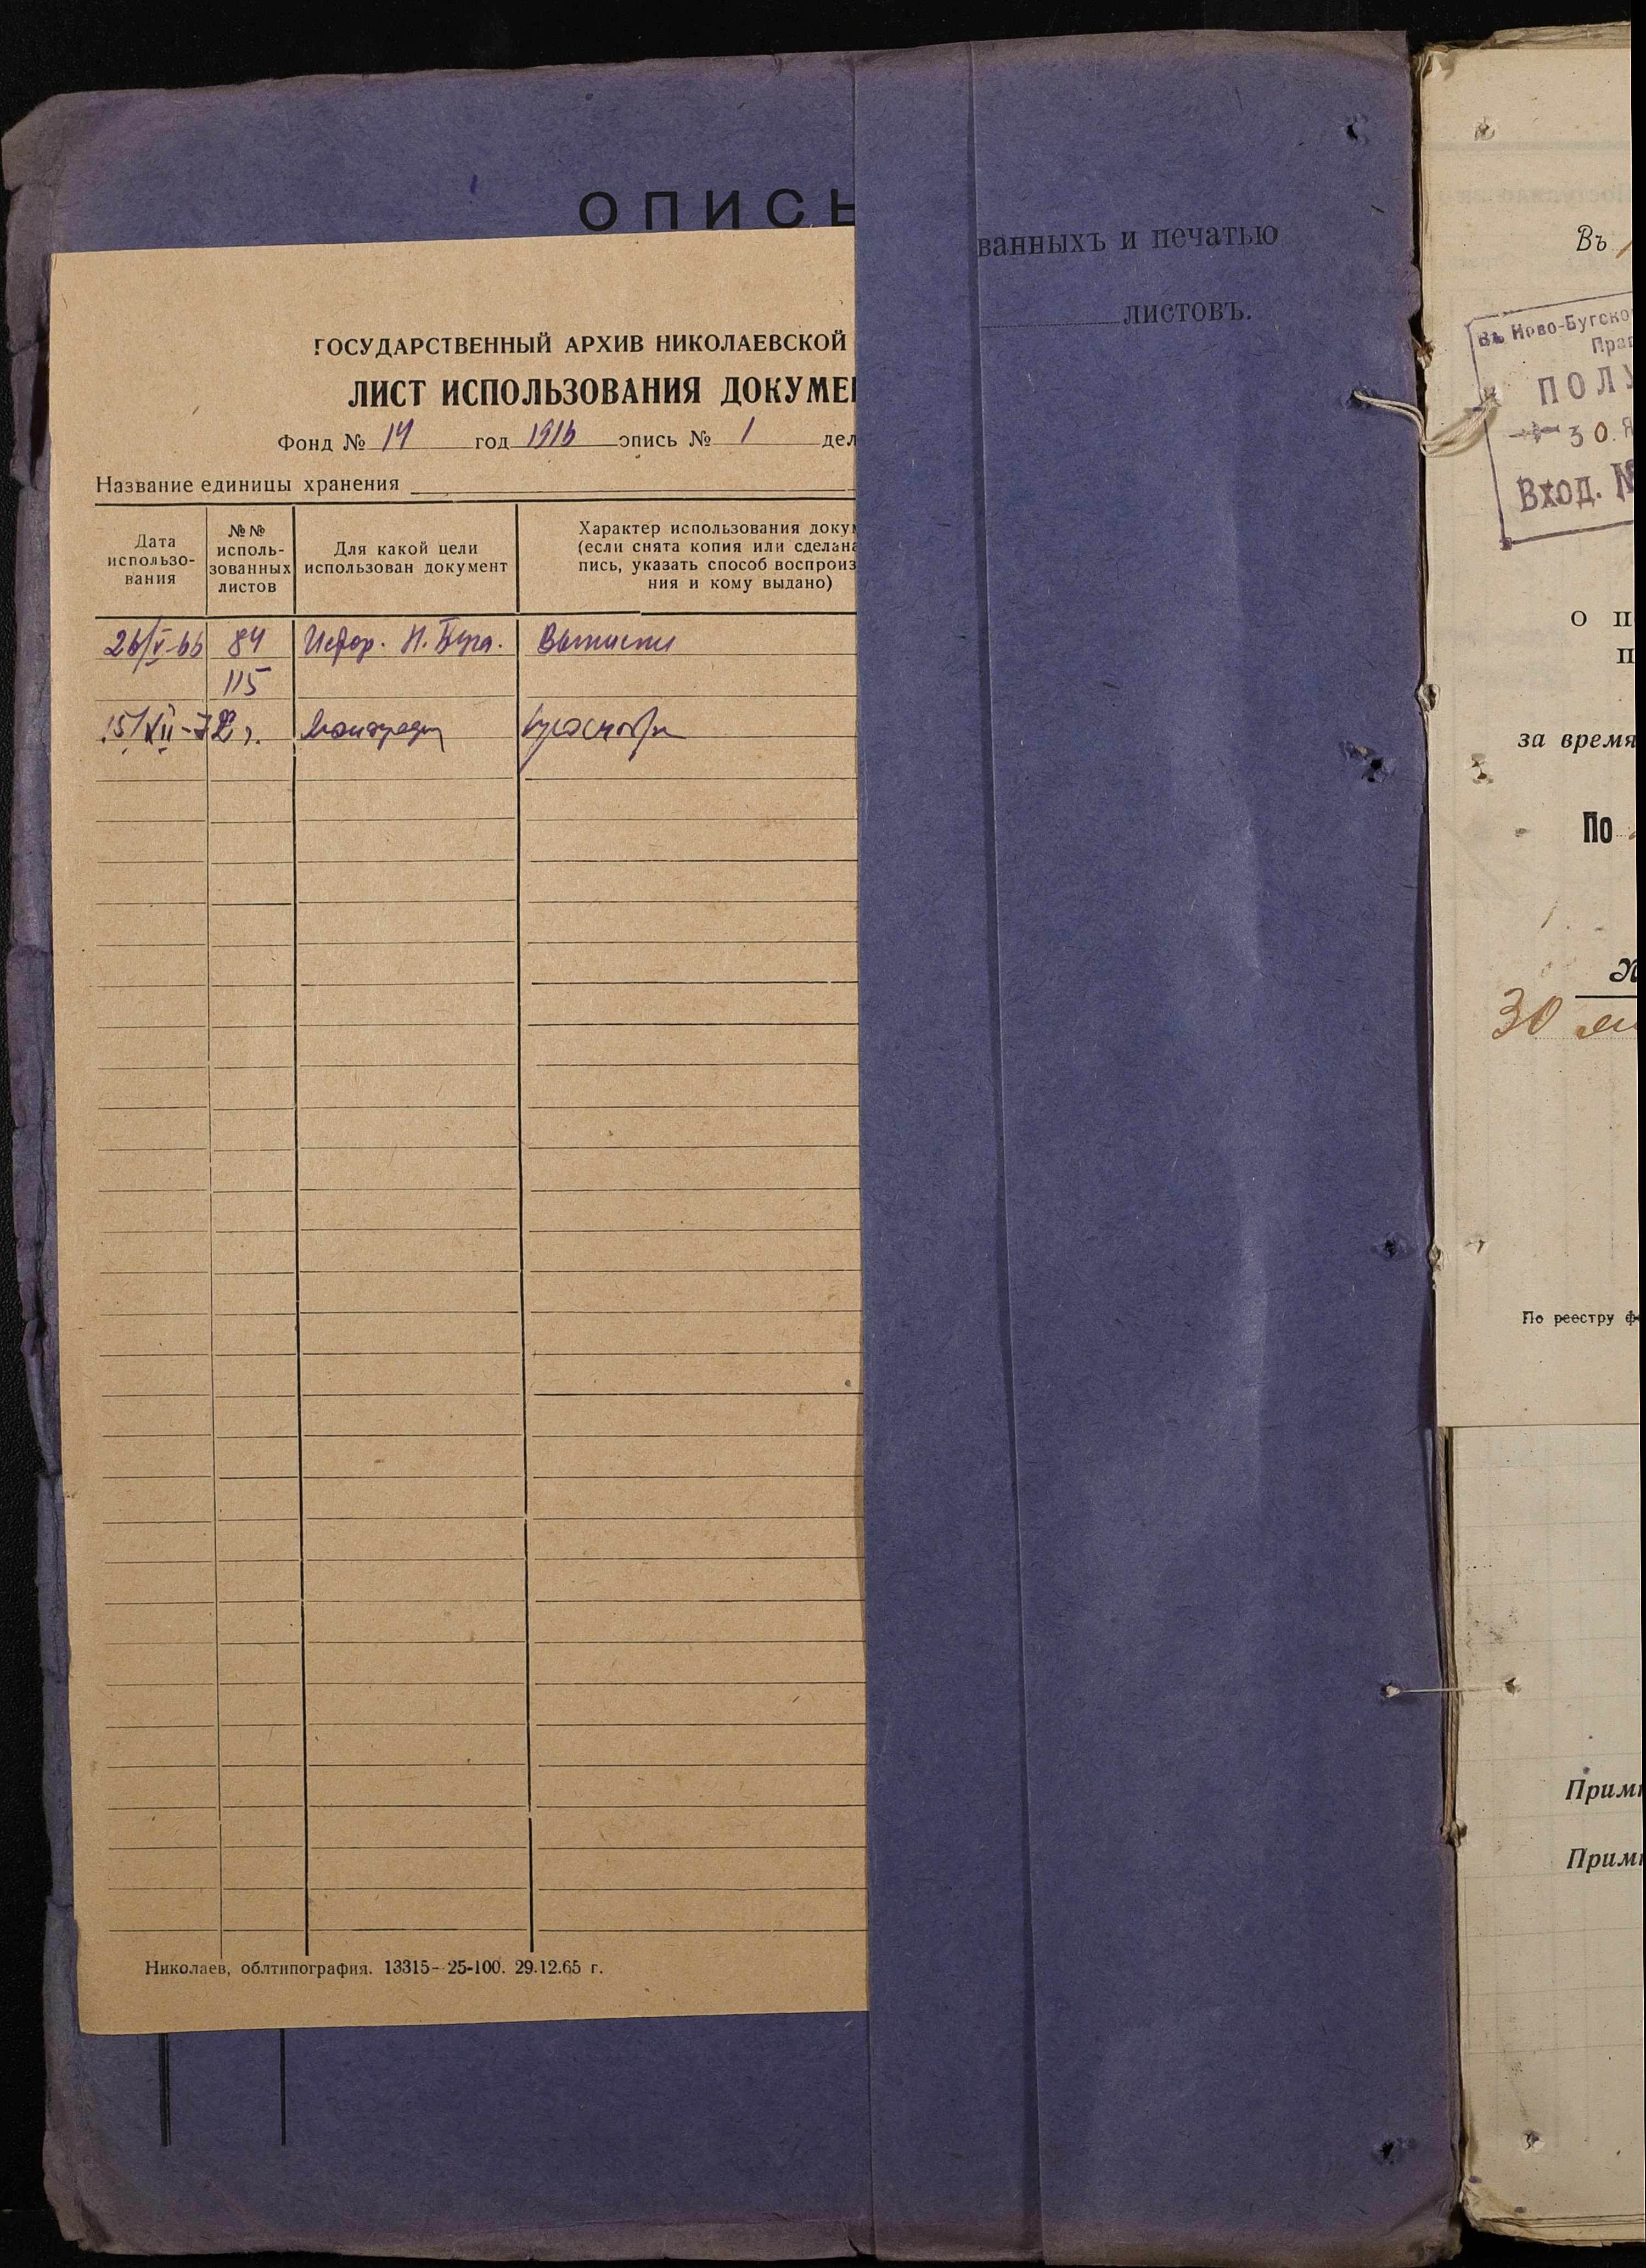 ОПИСЬ
ГОСУДАРСТВЕННЫЙ АРХИВ НИКОЛАЕВСКОЙ
ЛИСТ ИСПОЛЬЗОВАНИЯ ДОКУМЕ
Фонд № 14 год 1916 опись № 1 дел
Название единицы хранения
Дата использо-вания
№№ исполь-зованных листов
Для какой цели использован документ
Характер использования доку
(если снята копия или сделана
пись, указать способ воспроиз
ния и кому выдано)
26/V-66 84 Истор. Н. Буга. Выписки
115
15/XII-72 г. просмотр
Николаев, облтипография. 13315-25-100. 29.12.65 г.
ванныхъ и печатью
листовъ.
Въ
Въ Ново-Бугско
Пра
ПОЛУ
30. Я
Вход. №
О П
П
за время
По
30
По реестру ф
Прим
Прим